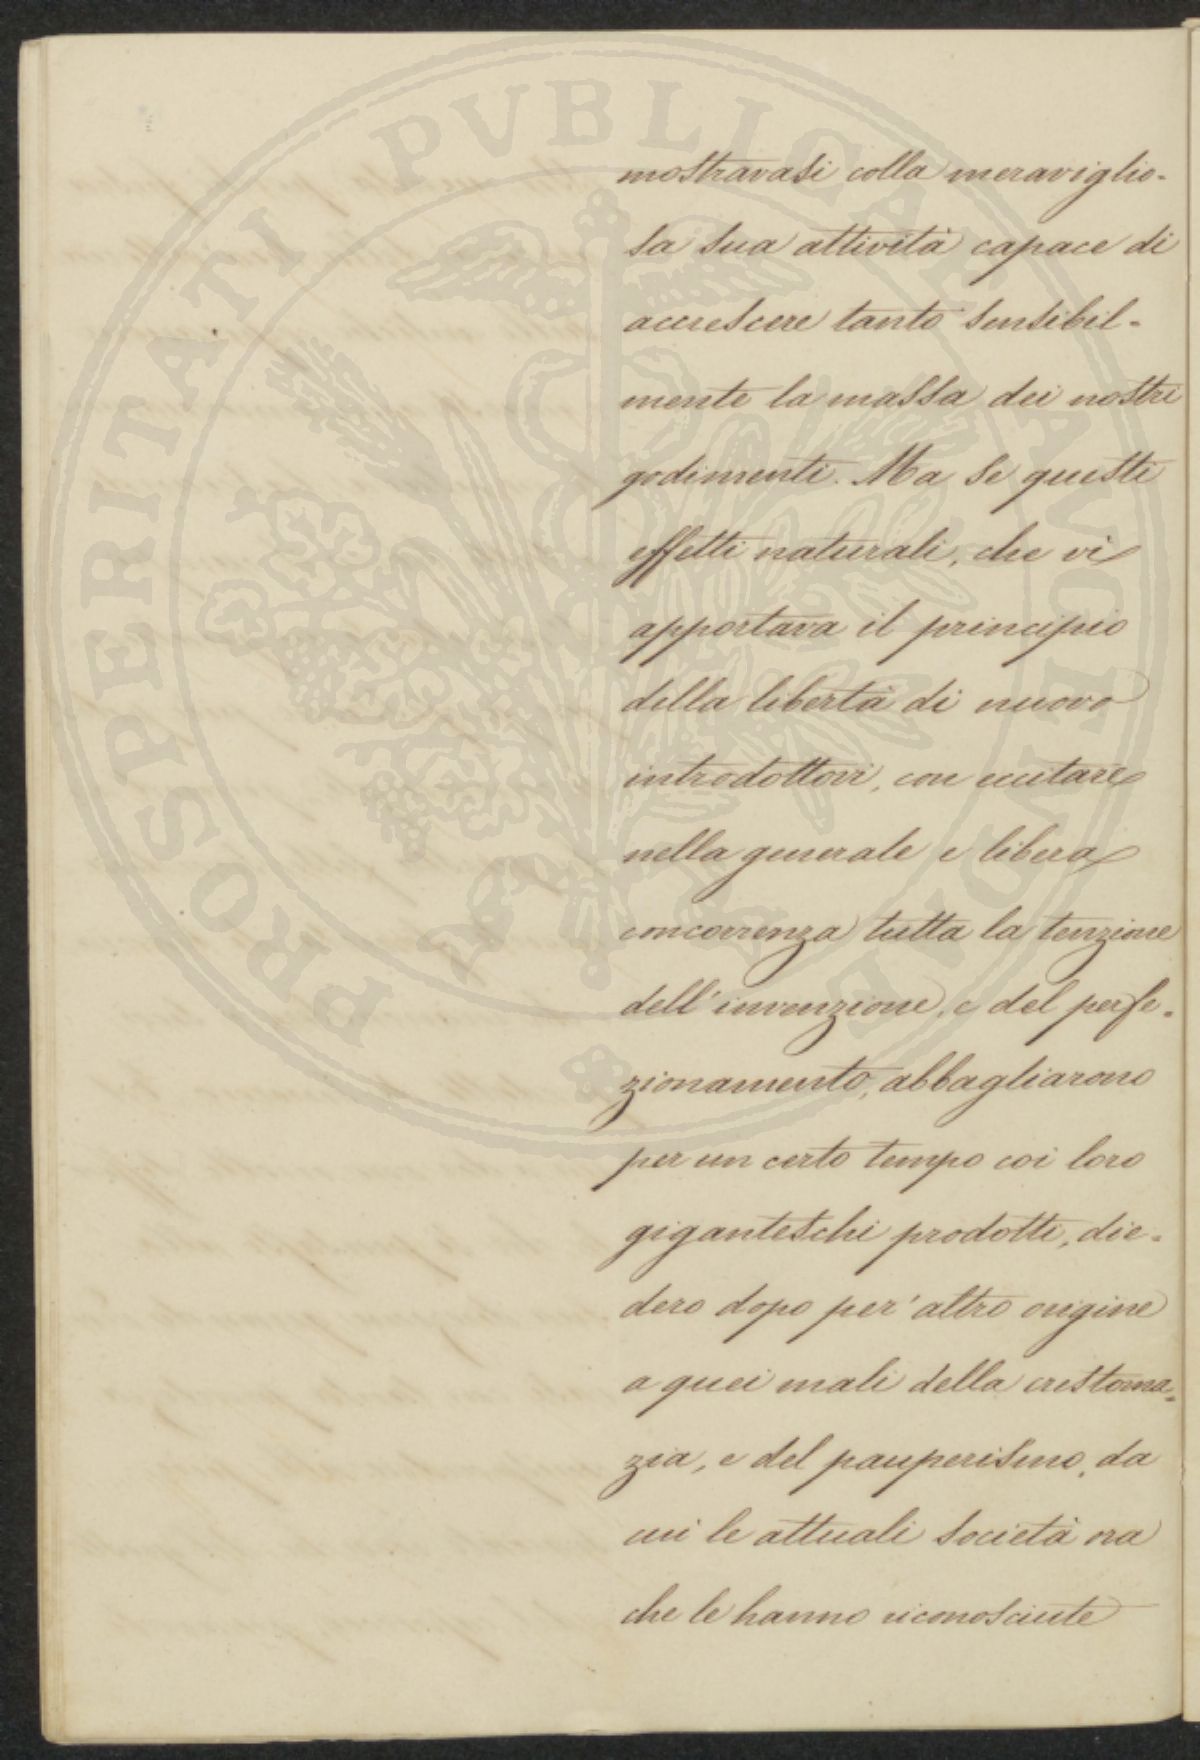 PROSPERITATI PVBLICAE AVGENDAE
mostravasi colla meraviglio-
sa sua attività capace di
accrescere tanto sensibil-
mente la massa dei nostri
godimenti. Ma se questi
effetti naturali, che vi
apportava il principio
della libertà di nuovo
introdottovi, con eccitare
nella generale e libera
concorrenza tutta la tenzione
dell'invenzione, e del perfe-
zionamento, abbagliarono
per un certo tempo coi loro
giganteschi prodotti, die-
dero dopo per' altro origine
a quei mali della crestoma-
zia, e del pauperismo, da
cui le attuali società ora
che le hanno riconosciute